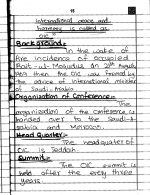 international peace and
harmony is called as
OIC
Background:-
In the wake of
fire incidence of occupied
Bait-ul-Maqudus on 21st August
1969 then the OIC was formed by
the advice of international minister
of Saudi-Arabia
Organization of Conference:-
The
organization of the conference is
handed over to the Saudi-
Arabia and Morocco.
Head Quater:-
The headquater of
OIC is Jeddah.
Summit:-
The OIC summit is
held after the every three
years.